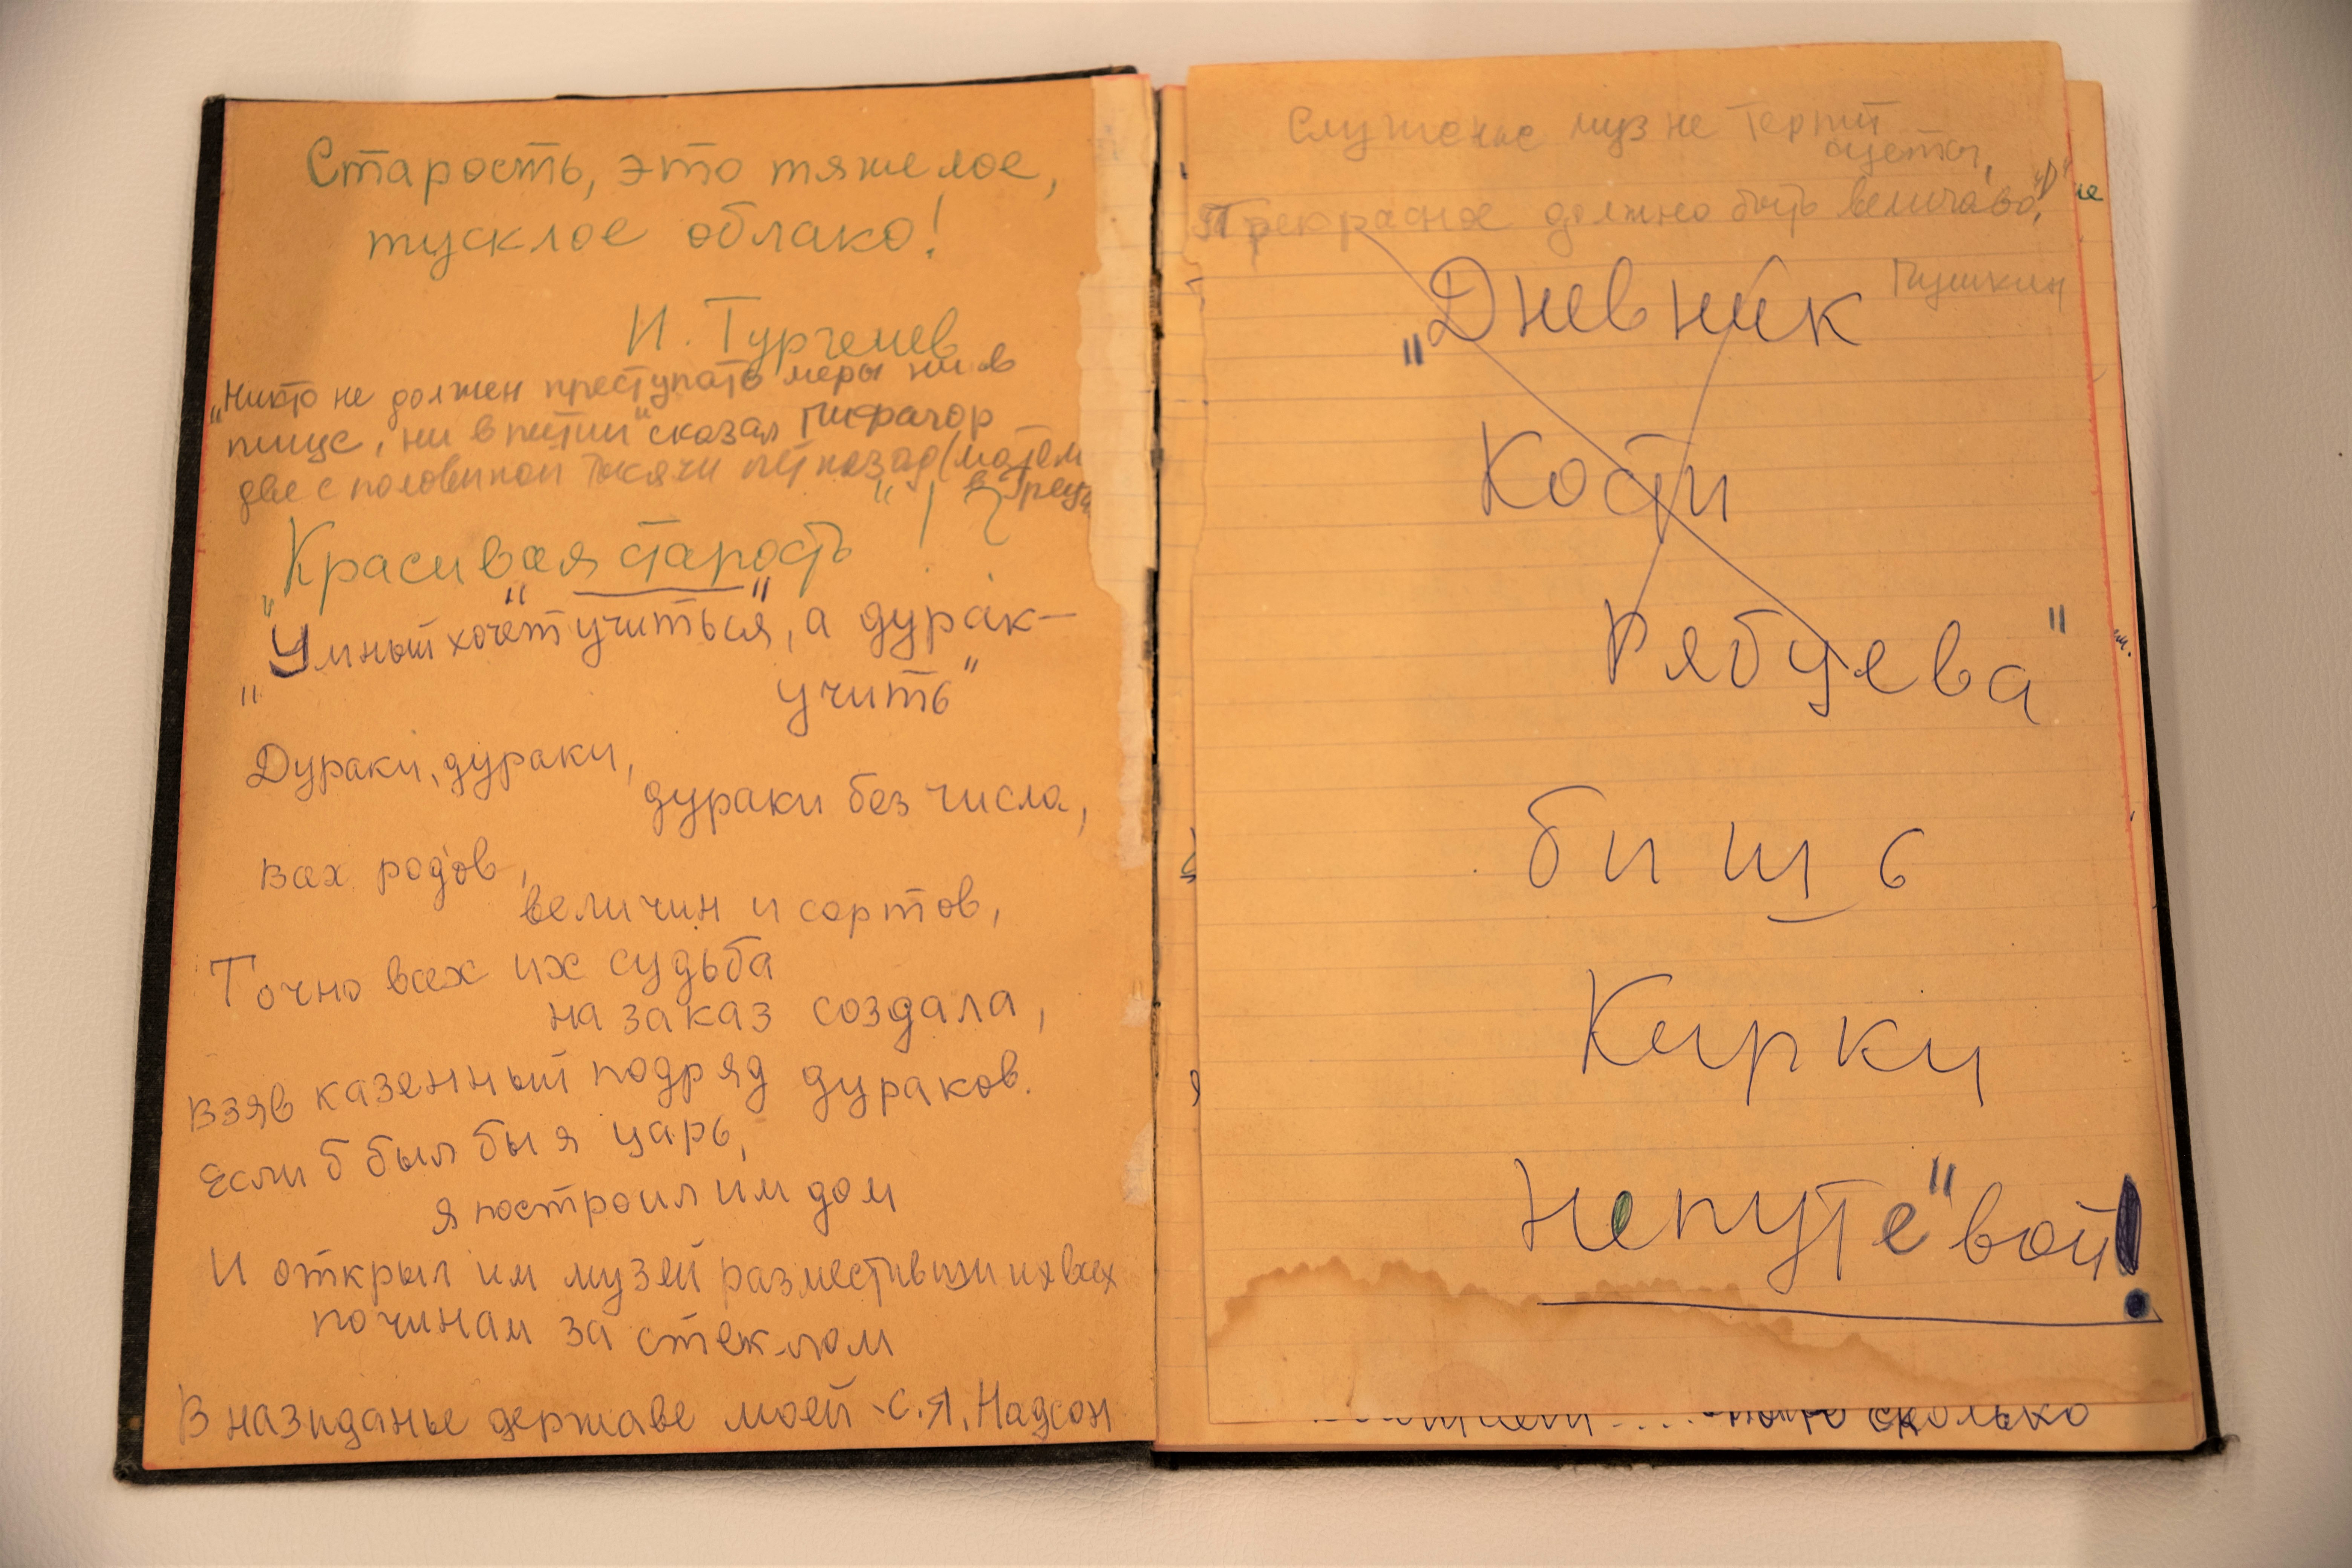 Старость, это тяжелое,
тусклое облако!
И. Тургенев
„Никто не должен преступать меры ни в
пище, ни в питии" сказал Пифагор
две с половиной тысячи лет назад (матем
в Грец
„Красивая старость" ! ?
„Умный хочет "учиться", а дурак —
учить"
Дураки, дураки,
дураки без числа,
всех родов,
величин и сортов,
Точно всех их судьба
на заказ создала,
Взяв казенный подряд дураков.
Если б был бы я царь,
я построил им дом
И открыл им музей разместивши их всех
по чинам за стеклом
В назиданье державе моей - С.Я. Надсон
Служенье муз не терпит
суеты,
Прекрасное должно быть величаво,
Пушкин
„Дневник
Кости
Рябцева"
бишь
Кирки
Непуте"вой!
сколько